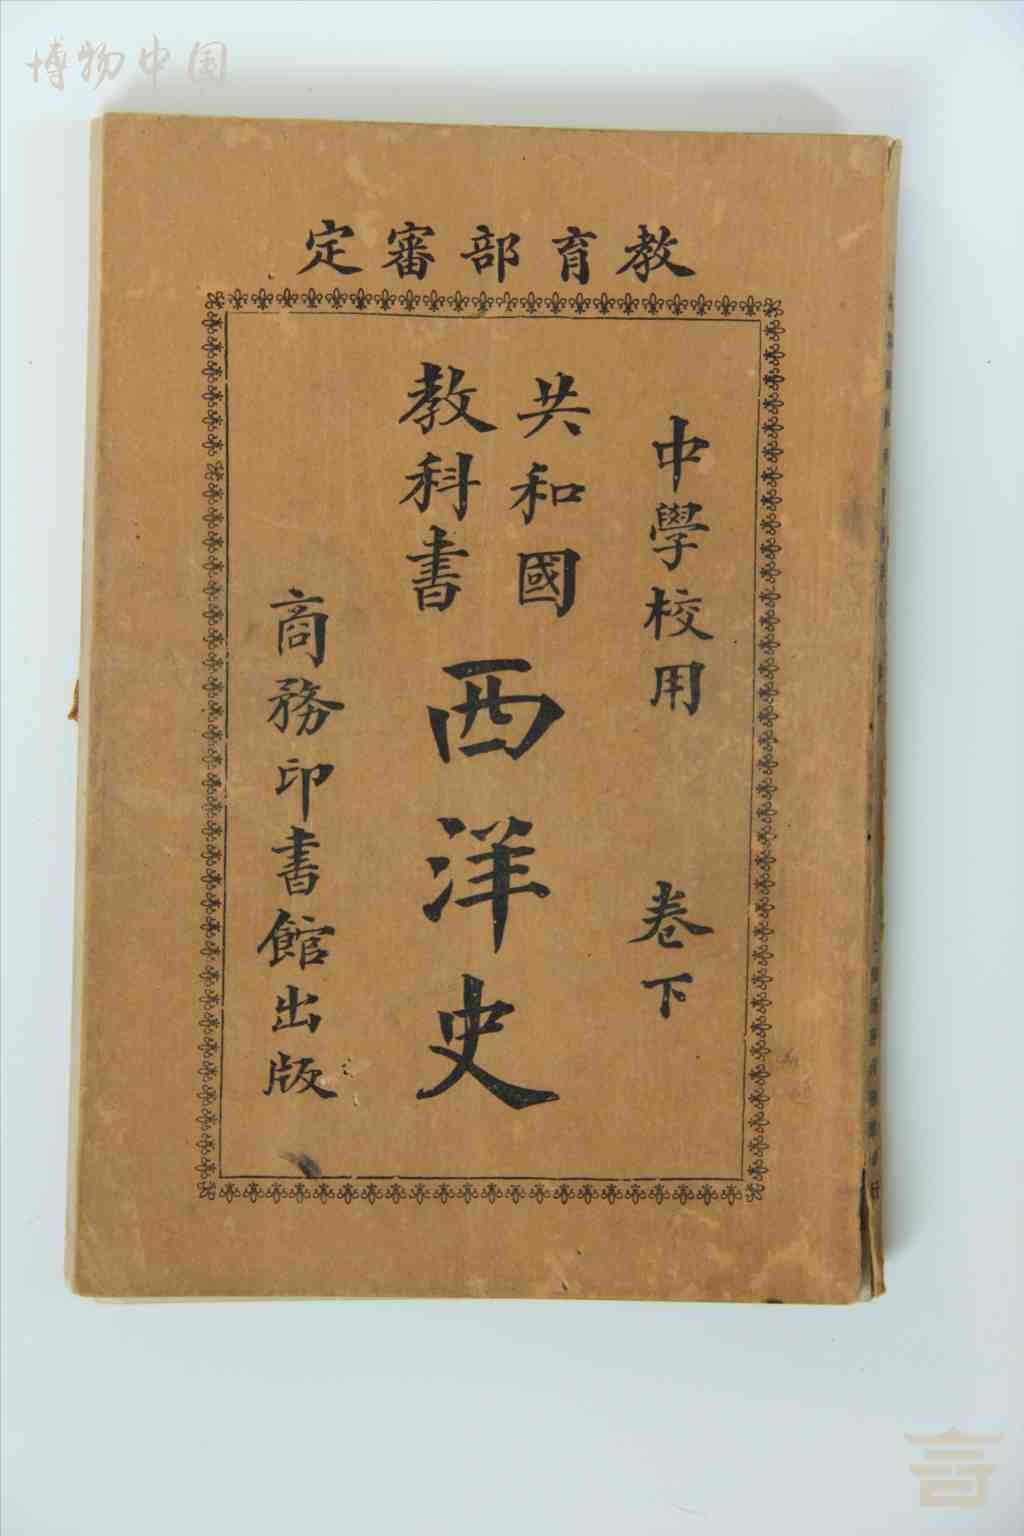 博物中国
教育部審定
中學校用 卷下
共和國
教科書
西洋史
商務印書館出版